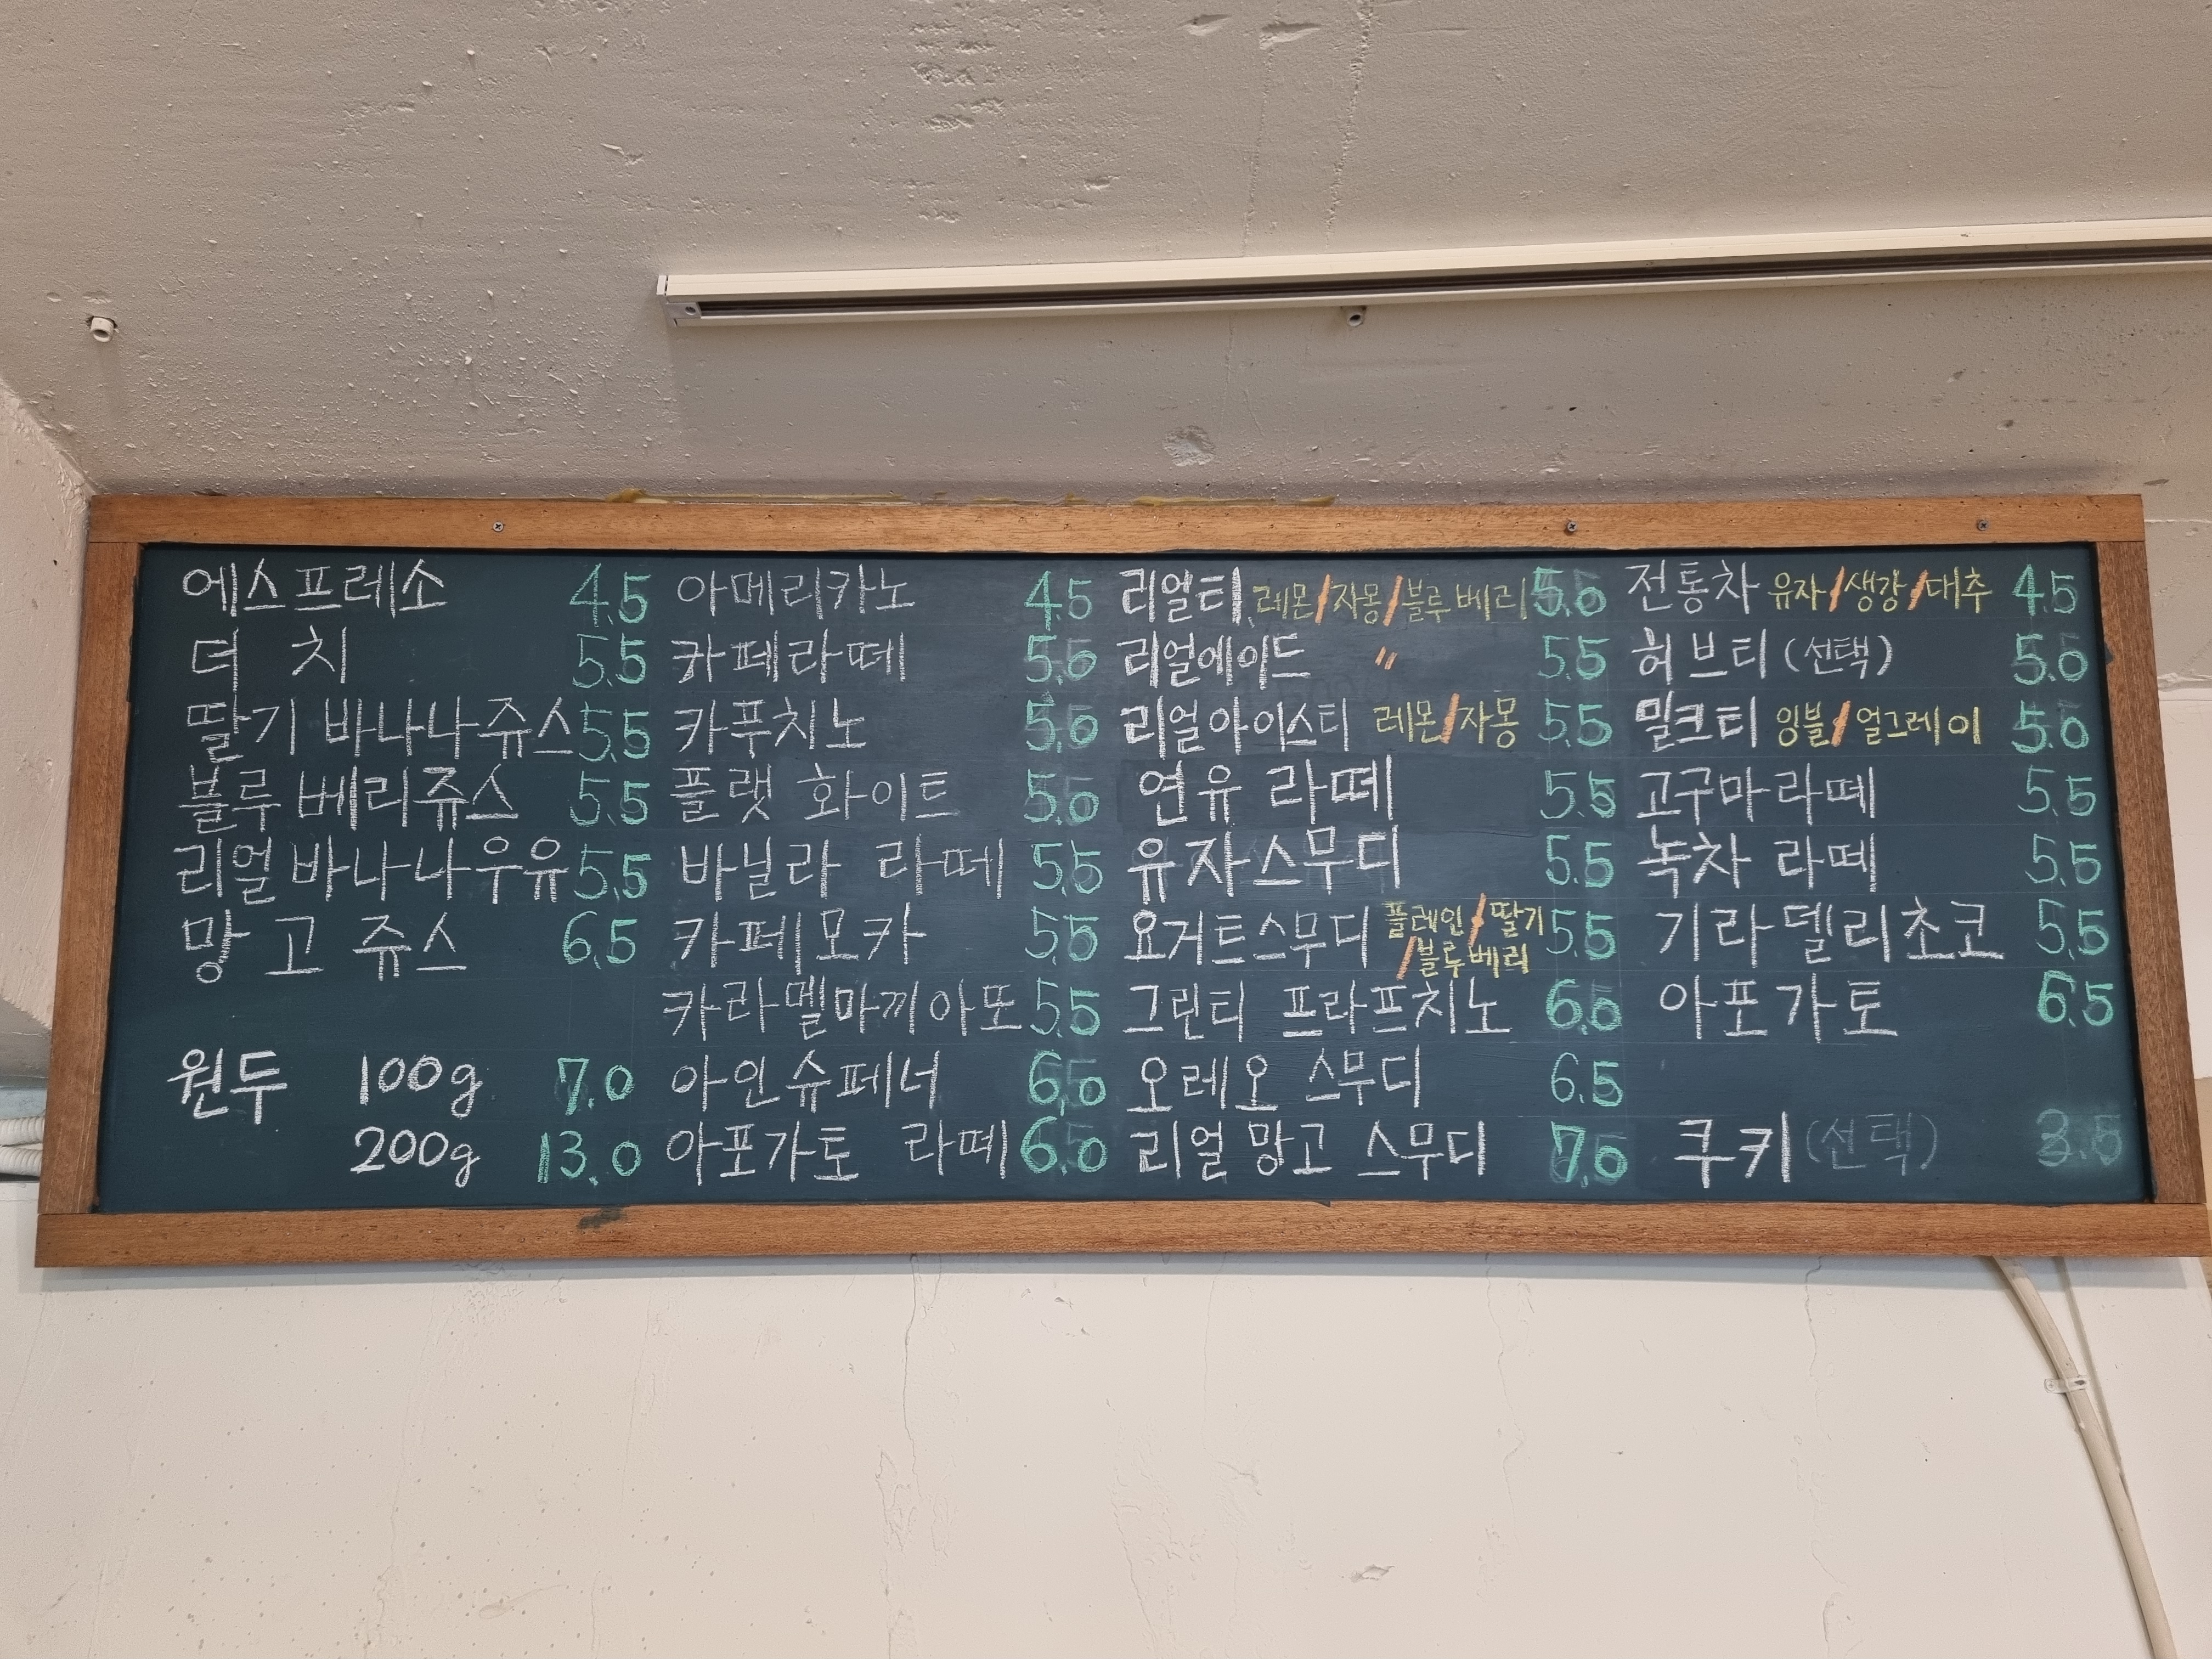 에스프레소 4.5
더 치 5.5
딸기 바나나쥬스 5.5
블루베리쥬스 5.5
리얼바나나우유 5.5
망고 쥬스 6.5
원두 100g 7.0
200g 13.0
아메리카노 4.5
카페라떼 5.0
카푸치노 5.0
플랫 화이트 5.0
바닐라 라떼 5.5
카페모카 5.5
카라멜마끼아또 5.5
아인슈페너 6.0
아포가토 라떼 6.0
리얼티 레몬/자몽/블루베리
리얼에이드 〃 5.5
리얼아이스티 레몬/자몽 5.5
연유 라떼 5.5
유자스무디 5.5
요거트스무디 플레인/딸기 5.5
/블루베리
그린티 프라프치노 6.0
오레오 스무디 6.5
리얼망고 스무디 7.0
전통차 유자/생강/대추 4.5
허브티 (선택) 5.0
밀크티 잉블/얼그레이 5.0
고구마라떼 5.5
녹차 라떼 5.5
기라델리초코 5.5
아포가토 6.5
쿠키 (선택)